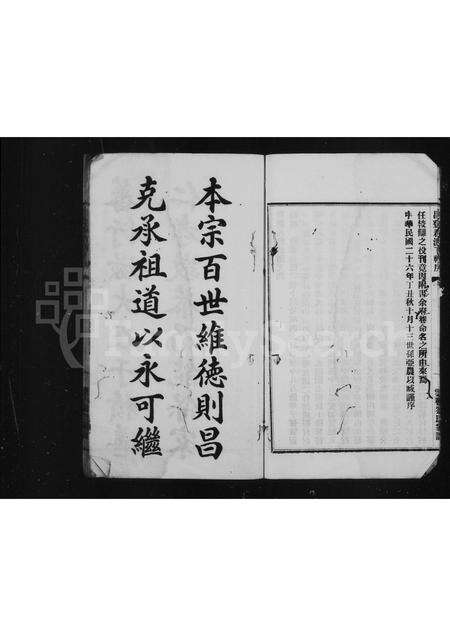 任校歸之役刊竟因識余族卷命名之所由來焉
中華民國二十六年丁丑秋十月十三世孫亞農以咸謹序
本宗百世維德則昌
克承祖道以永可繼
FamilySearch